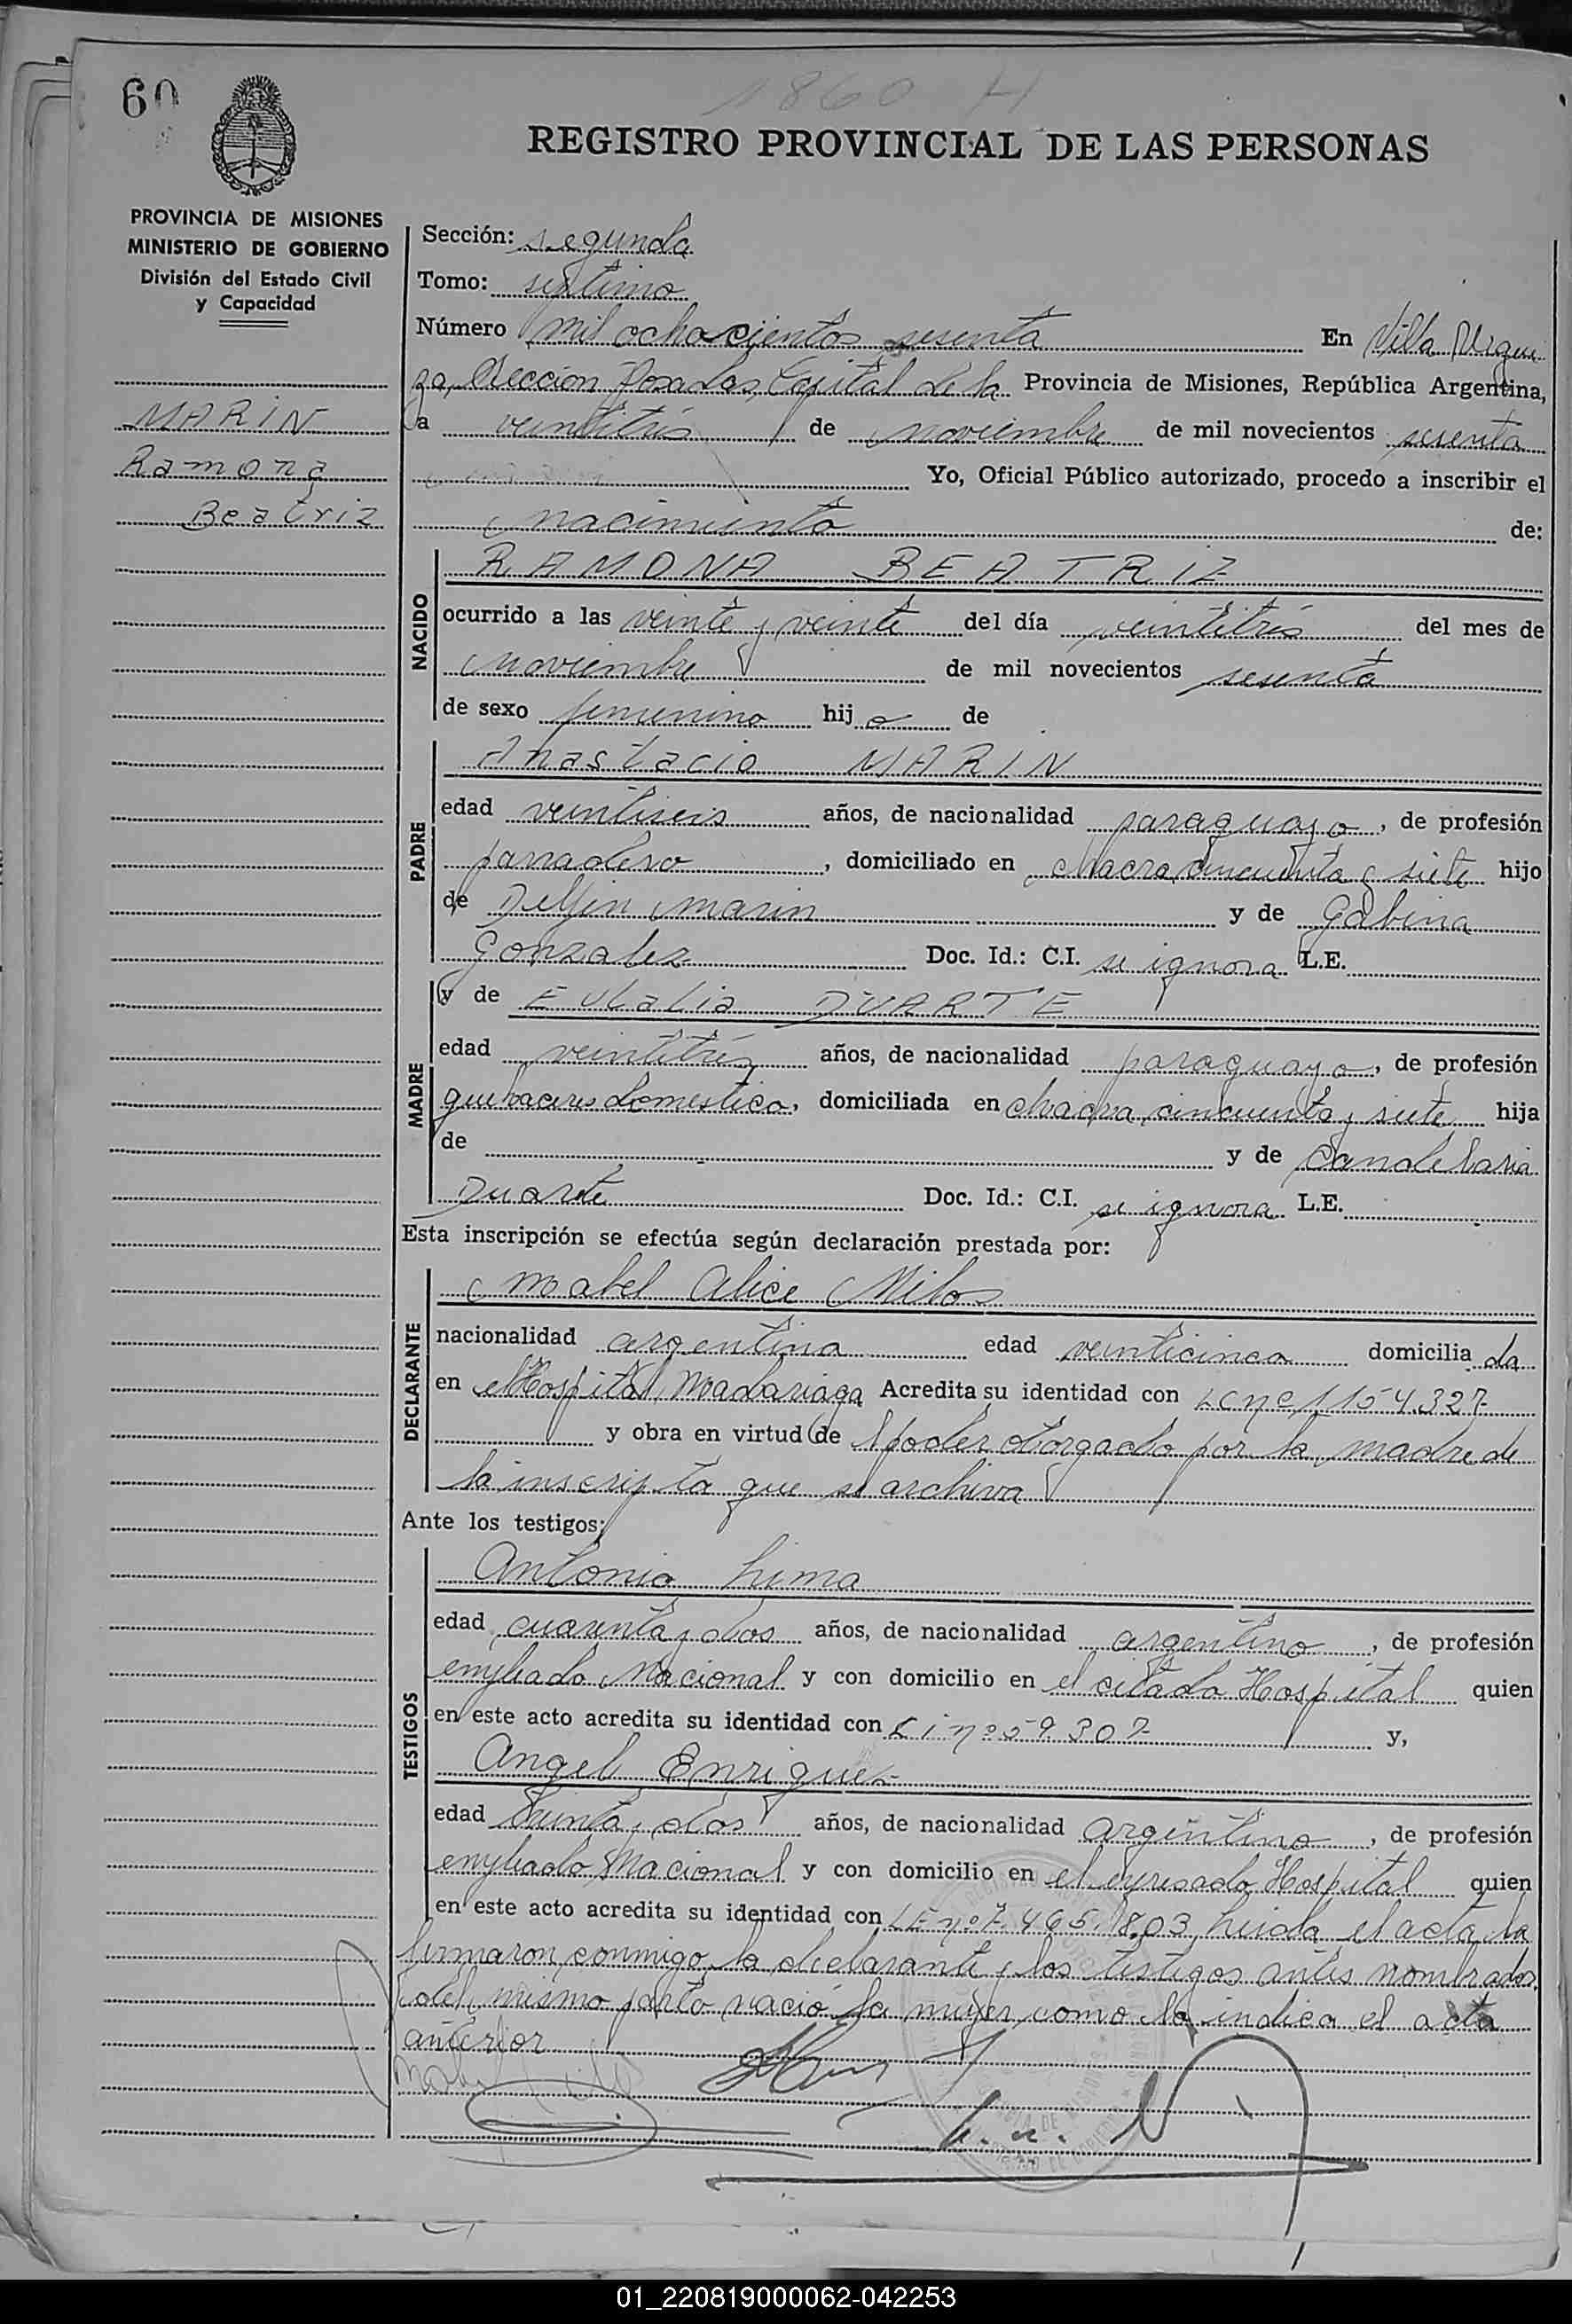 60
1860 H
REGISTRO PROVINCIAL DE LAS PERSONAS
PROVINCIA DE MISIONES
MINISTERIO DE GOBIERNO
División del Estado Civil
y Capacidad
MARIN
Ramona
Beatriz
Sección: segunda
Tomo: septimo
Número mil ochocientos sesenta En Villa Urqui
za, Sección Posadas, Capital de la Provincia de Misiones, República Argentina,
a veintitrés de noviembre de mil novecientos sesenta
Yo, Oficial Público autorizado, procedo a inscribir el
nacimiento de:
NACIDO
RAMONA BEATRIZ
ocurrido a las veinte y veinte del día veintitrés del mes de
noviembre de mil novecientos sesenta
de sexo femenino hij a de
PADRE
Anastacio MARIN
edad veintiseis años, de nacionalidad paraguayo, de profesión
panadero, domiciliado en chacra cincuenta y siete hijo
de Delfin Marin y de Gabina
Gonzalez Doc. Id.: C.I. se ignora L.E.
MADRE
y de Eulalia DUARTE
edad veintitrés años, de nacionalidad paraguaya, de profesión
quehaceres domestico, domiciliada en chacra cincuenta y siete hija
de y de Candelaria
Duarte Doc. Id.: C.I. se ignora L.E.
Esta inscripción se efectúa según declaración prestada por:
DECLARANTE
Mabel Alice Milos
nacionalidad argentina edad veinticinco domicilia da
en el Hospital Madariaga Acredita su identidad con LC nº 1154.327
y obra en virtud de poder otorgado por la madre de
la inscripta que se archiva
Ante los testigos:
TESTIGOS
Antonio Lima
edad cuarenta y dos años, de nacionalidad argentino, de profesión
empleado Nacional y con domicilio en el citado Hospital quien
en este acto acredita su identidad con C i nº 59.307 y,
Angel Enriquez
edad treinta y dos años, de nacionalidad argentino, de profesión
empleado Nacional y con domicilio en el expresado Hospital quien
en este acto acredita su identidad con LE nº 7.465.803, Leida el acta la
firmaron conmigo la declarante y los testigos antes nombrados.
del mismo parto nació la mujer como lo indica el acta
anterior
01_220819000062-042253